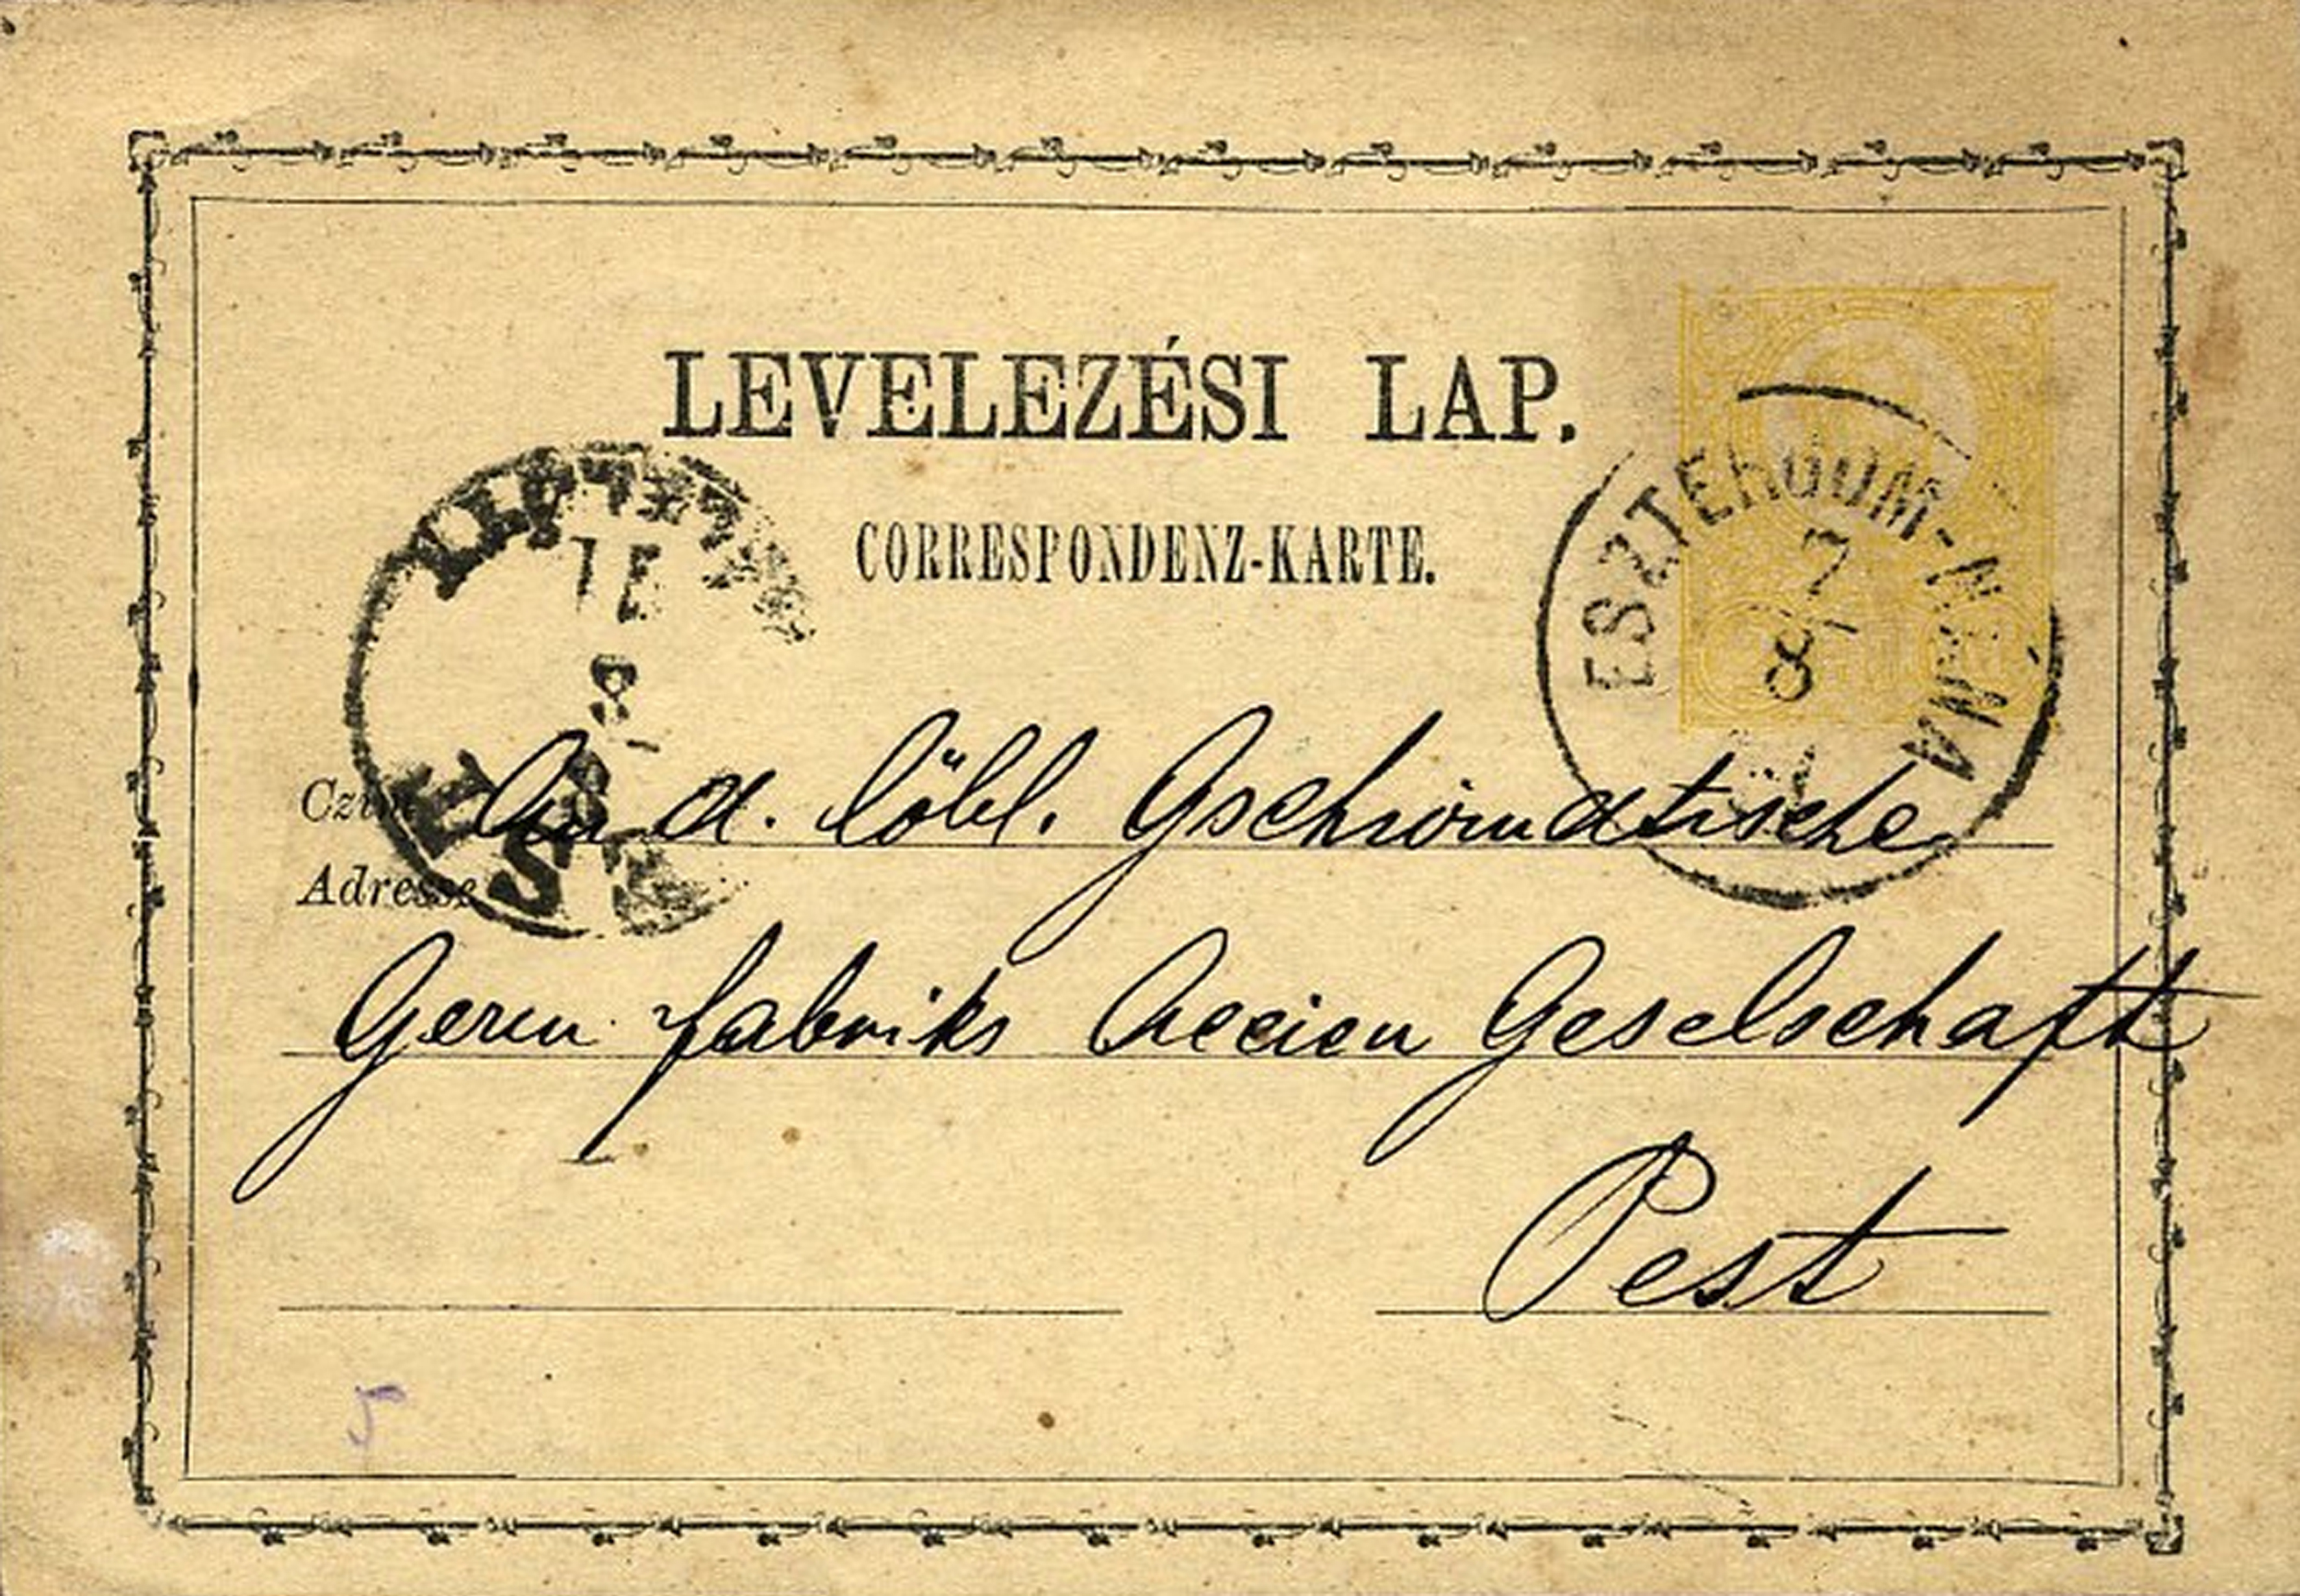 LEVELEZÉSI LAP.
CORRESPONDENZ-KARTE.
ESZTERGOM-NÁNA
7
8
Czim
An d. löbl. Gschwindtische
Adresse
Germ fabriks Accien Geselschaft
Pest
5